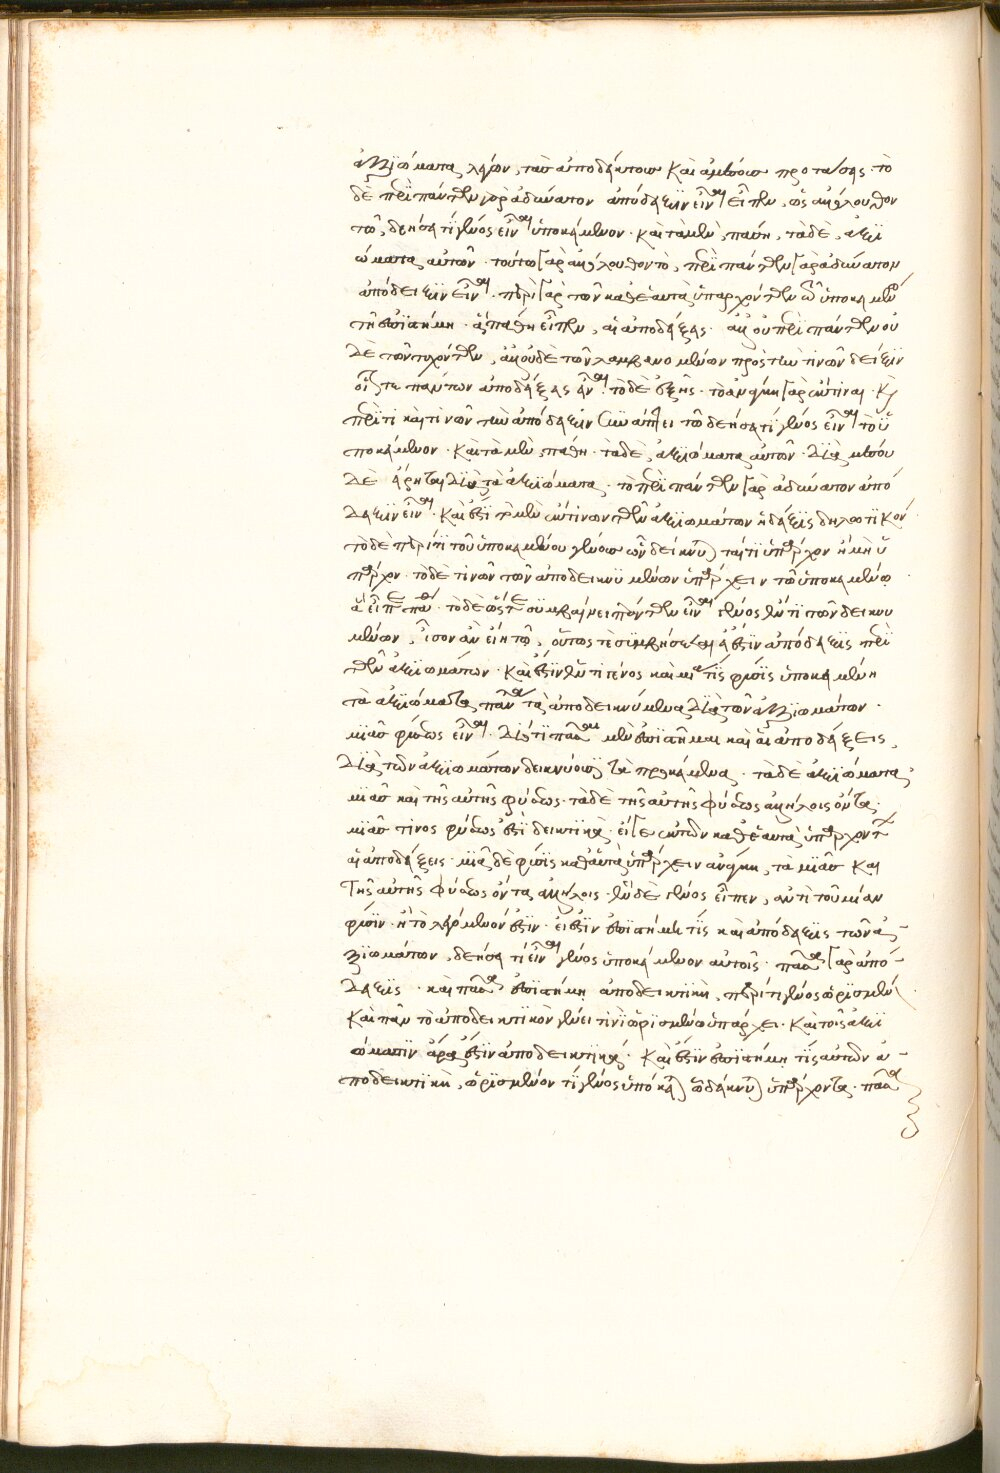 ἀξιώματα λέγων, τὰς ἀποδείκτους καὶ ἀμέσους προτάσεις. τὸ
δὲ περὶ πάντων γὰρ ἀδύνατον ἀπόδειξιν εἶναι εἶπεν, ὡς ἀκόλουθον
τῷ, δεήσει τι γένος εἶναι ὑποκείμενον. καὶ τὰ μὲν, πάθη, τὰ δὲ, ἀξι
ώματα αὐτῶν. τούτω γὰρ ἀκόλουθον τὸ, περὶ πάντων γὰρ ἀδύνατον
ἀπόδειξιν εἶναι. περὶ γὰρ τῶν καθ' ἑαυτὰ ὑπαρχόντων τῶ ὑποκειμένω
τῆ ἐπιστήμη. ἃ πάθη εἶπεν, αἱ ἀποδείξεις. ἀλλ' οὐ περὶ πάντων οὐ
δὲ τῶν τυχόντων, ἀλλ' οὐδὲ τῶν λαμβανομένων πρὸς τὴν τινῶν δεῖξιν
οἷόν τε πάντων ἀποδείξεις εἶναι. τὸ δὲ ἑξῆς. τὸ ἀνάγκη γὰρ ἔκ τινων. καὶ
περί τι καὶ τινῶν τὴν ἀπόδειξιν συνάπτει τῶ δεήσει τι γένος εἶναι τὸ ὑ
ποκείμενον. καὶ τὰ μὲν, πάθη. τὰ δὲ, ἀξιώματα αὐτῶν. διὰ μέσου
δὲ εἴρηται διὰ τὰ ἀξιώματα. τὸ περὶ πάντων γὰρ ἀδύνατον ἀπό
δειξιν εἶναι. καὶ ἔστι τὸ μὲν ἔκ τινων τῶν ἀξιωμάτων ἡ δεῖξις δηλωτικόν.
τὸ δὲ περί τι τοῦ ὑποκειμένου γένους ὧ δείκνυταί τι ὑπάρχον ἢ μὴ ὑ
πάρχον. τὸ δὲ τινῶν τῶν ἀποδεικνυμένων ὑπάρχειν τῶ ὑποκειμένω.
τὸ δὲ ὥστε συμβαίνει πάντων εἶναι γένος ἕν τι τῶν δεικνυ
μένων, ἴσον ἂν εἴη τῶ, οὕτως τε συμβήσεται εἰ ἔστιν ἀπόδειξις περὶ
τῶν ἀξιωμάτων. καὶ ἔστιν ἕν τι γένος καὶ μία τις φύσις ὑποκειμένη
τὰ ἀξιώματα πάντα τὰ ἀποδεικνύμενα διὰ τῶν ἀξιωμάτων.
μιᾶς φύσεως εἶναι. διότι πᾶσαι μὲν ἐπιστῆμαι καὶ αἱ ἀποδείξεις,
διὰ τῶν ἀξιωμάτων δεικνύουσι τὰ προκείμενα. τὰ δὲ ἀξιώματα
μιᾶς καὶ τῆς αὐτῆς φύσεως. τὰ δὲ τῆς αὐτῆς φύσεως ἀλλήλοις ὄντα.
μιᾶς τινος φύσεως ἐστὶ δεικτικά. εἴ γε ἐκ τῶν καθ' ἑαυτὰ ὑπαρχόντων
αἱ ἀποδείξεις. μιᾶ δὲ φύσει καθ' αὑτὰ ὑπάρχειν ἀνάγκη, τὰ μιᾶς καὶ
τῆς αὐτῆς φύσεως ὄντα ἀλλήλοις. ἓν δὲ γένος εἶπεν, ἀντὶ τοῦ μίαν
φύσιν. ἢ τὸ λεγόμενόν ἐστιν. εἰ ἔστιν ἐπιστήμη τις καὶ ἀπόδειξις τῶν ἀ-
ξιωμάτων, δεήσει τι εἶναι γένος ὑποκείμενον αὐτοῖς. πᾶσα γὰρ ἀπό-
δειξις. καὶ πᾶσα ἐπιστήμη ἀποδεικτικὴ, περί τι γένος ὡρισμένον.
καὶ πᾶν τὸ ἀποδεικτικὸν γένει τινὶ ὡρισμένω ὑπάρχει. καὶ τοῖς ἀξι
ώμασιν ἄρα ἐστὶν ἀποδεικτικά. καὶ ἔστιν ἐπιστήμη τις αὐτῶν ἀ-
ποδεικτικὴ, ὡρισμένον τι γένος ὑπόκειται ὧ δείκνυται ὑπάρχοντα. πᾶσα